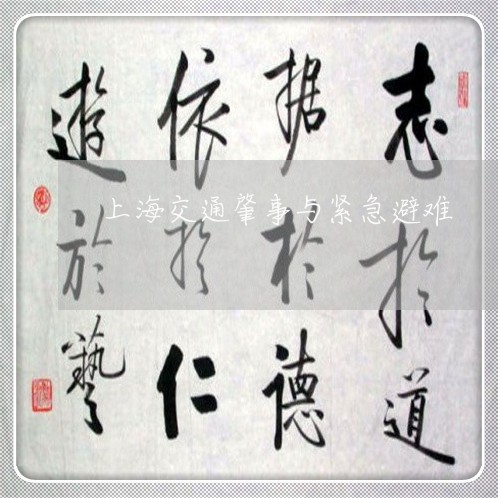 志於道
据於德
依於仁
遊於藝
上海交通肇事与紧急避难